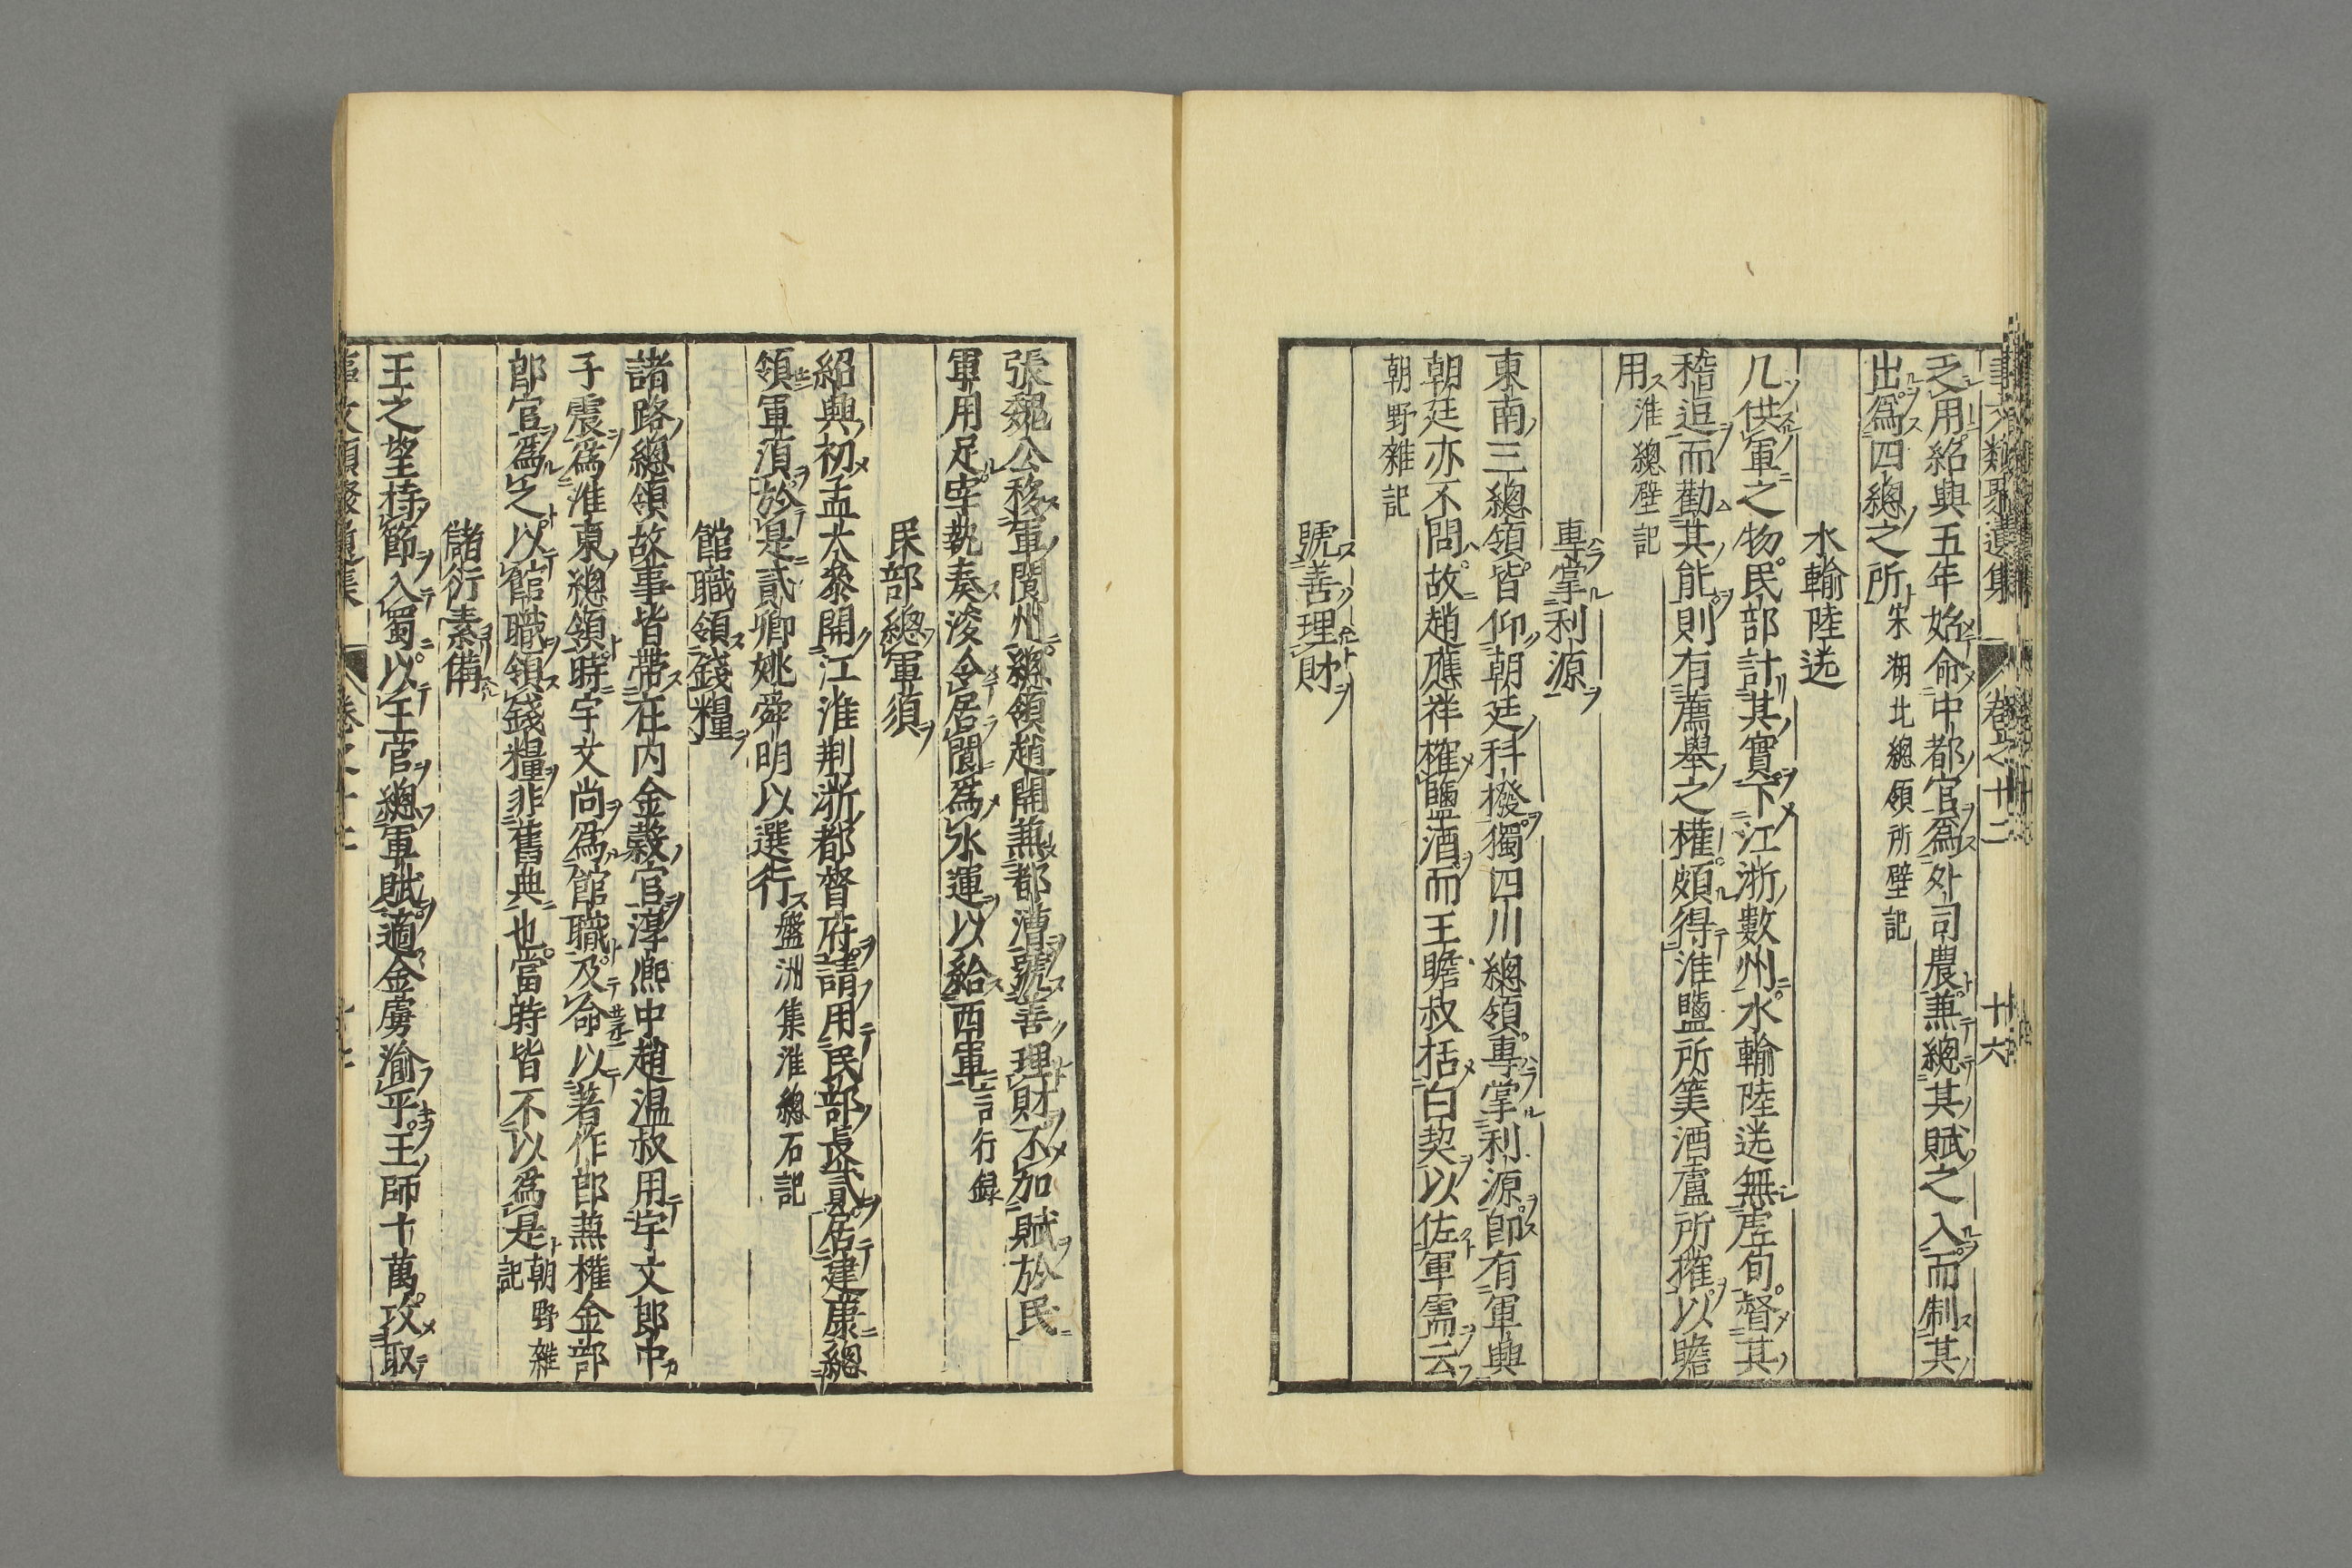 事文類聚遺集 卷之十二 十六
乏用紹興五年始命中都官爲外司農兼總其賦之入而制其
出爲四總之所 宋湖北總領所壁記
水輸陸送
凡供軍之物民部計其實下江浙數州水輸陸送無虛旬督其
稽逗而勸其能則有薦舉之權頗得淮鹽所筭酒壚所搉以贍
用 淮總壁記
專掌利源
東南三總領皆仰朝廷科撥獨四川總領專掌利源卽有軍興
朝廷亦不問故趙應祥榷鹽酒而王瞻叔括白契以佐軍需云
朝野雜記
號善理財
張魏公移軍閬州總領趙開兼都漕號善理財不加賦於民
軍用足宰執奏浚令居閬爲水運以給西軍 言行録
民部總軍須
紹興初孟大參開江淮荆浙都督府請用民部長貳居建康總
領軍須於是貳卿姚舜明以選行 盤洲集淮總石記
館職領錢糧
諸路總領故事皆帶在内金穀官淳熈中趙温叔用宇文郎中
子震爲淮東總領時宇文尚爲館職及命以著作郎兼權金部
郎官爲之以館職領錢糧非舊典也當時皆不以爲是 朝野雜記
儲偫素備
王之望持節入蜀以王官總軍賦適金虜渝平王師十萬攻取
事文類聚遺集 卷之十二 十七